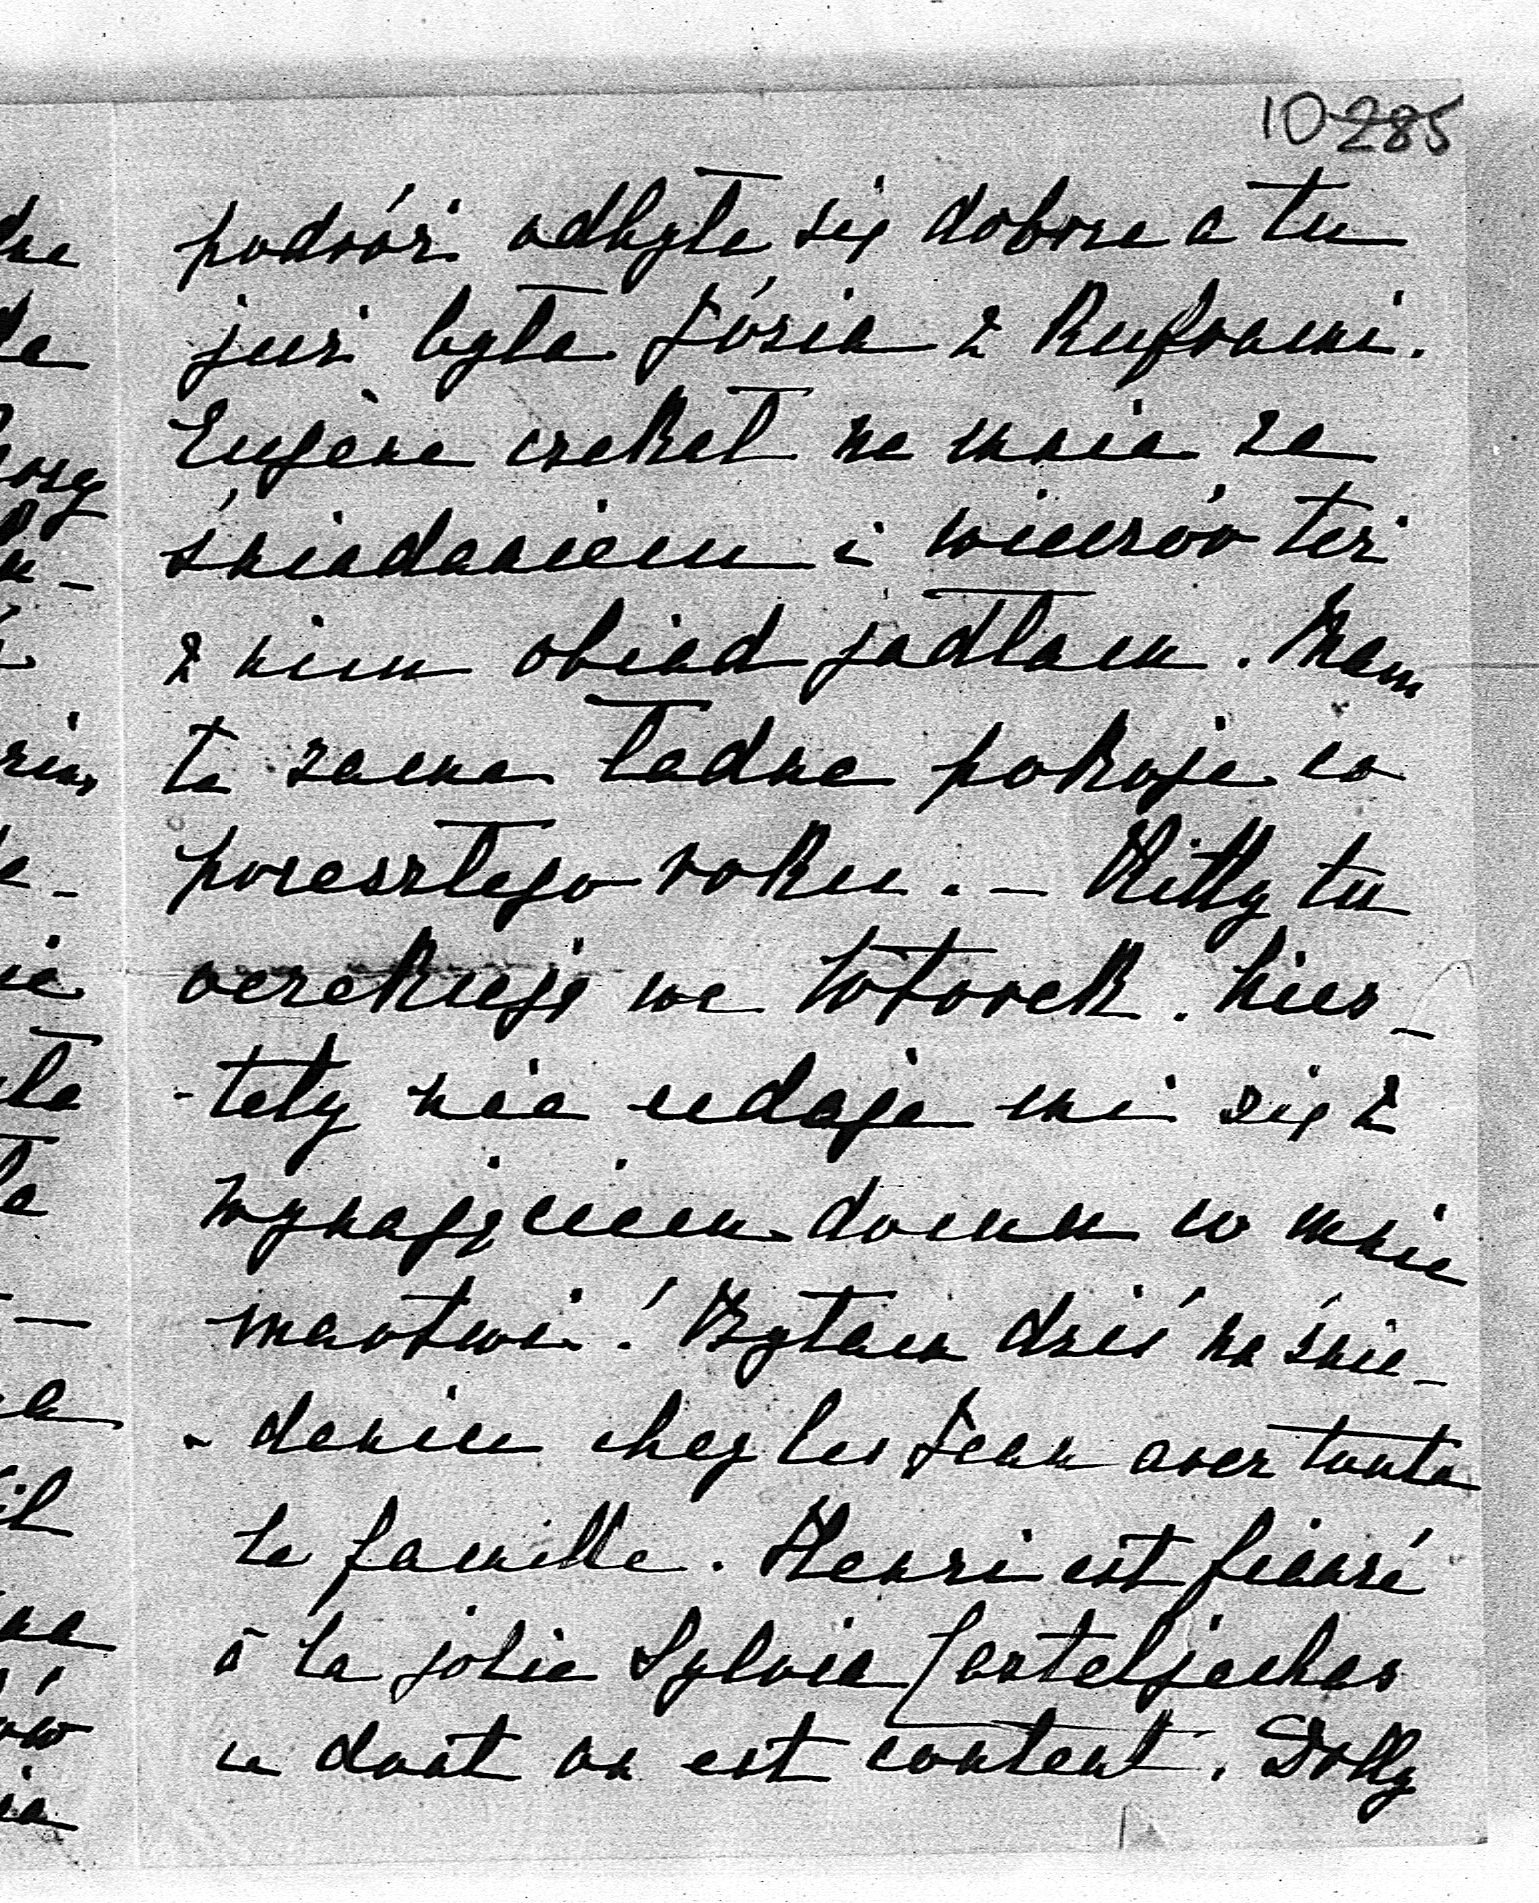 10 285
podróż odbyła się dobrze a tu
już była Józia z Kuframi.
Eugène czekał na mnie ze
śniadaniem i wieczór też
z nim obiad jadłam. Mam
te same ładne pokoje co
przeszłego roku. — Kitty tu
oczekuję we Wtorek. Nies-
-tety nie udaje mi się z
wynajęciem domu co mnie
martwi! Byłam dziś na śnia-
-daniu chez les Jean avec toute
la famille. Henri est fiancé
à la jolie Sylvia Casteljachas
ce dont on est content. Dolly